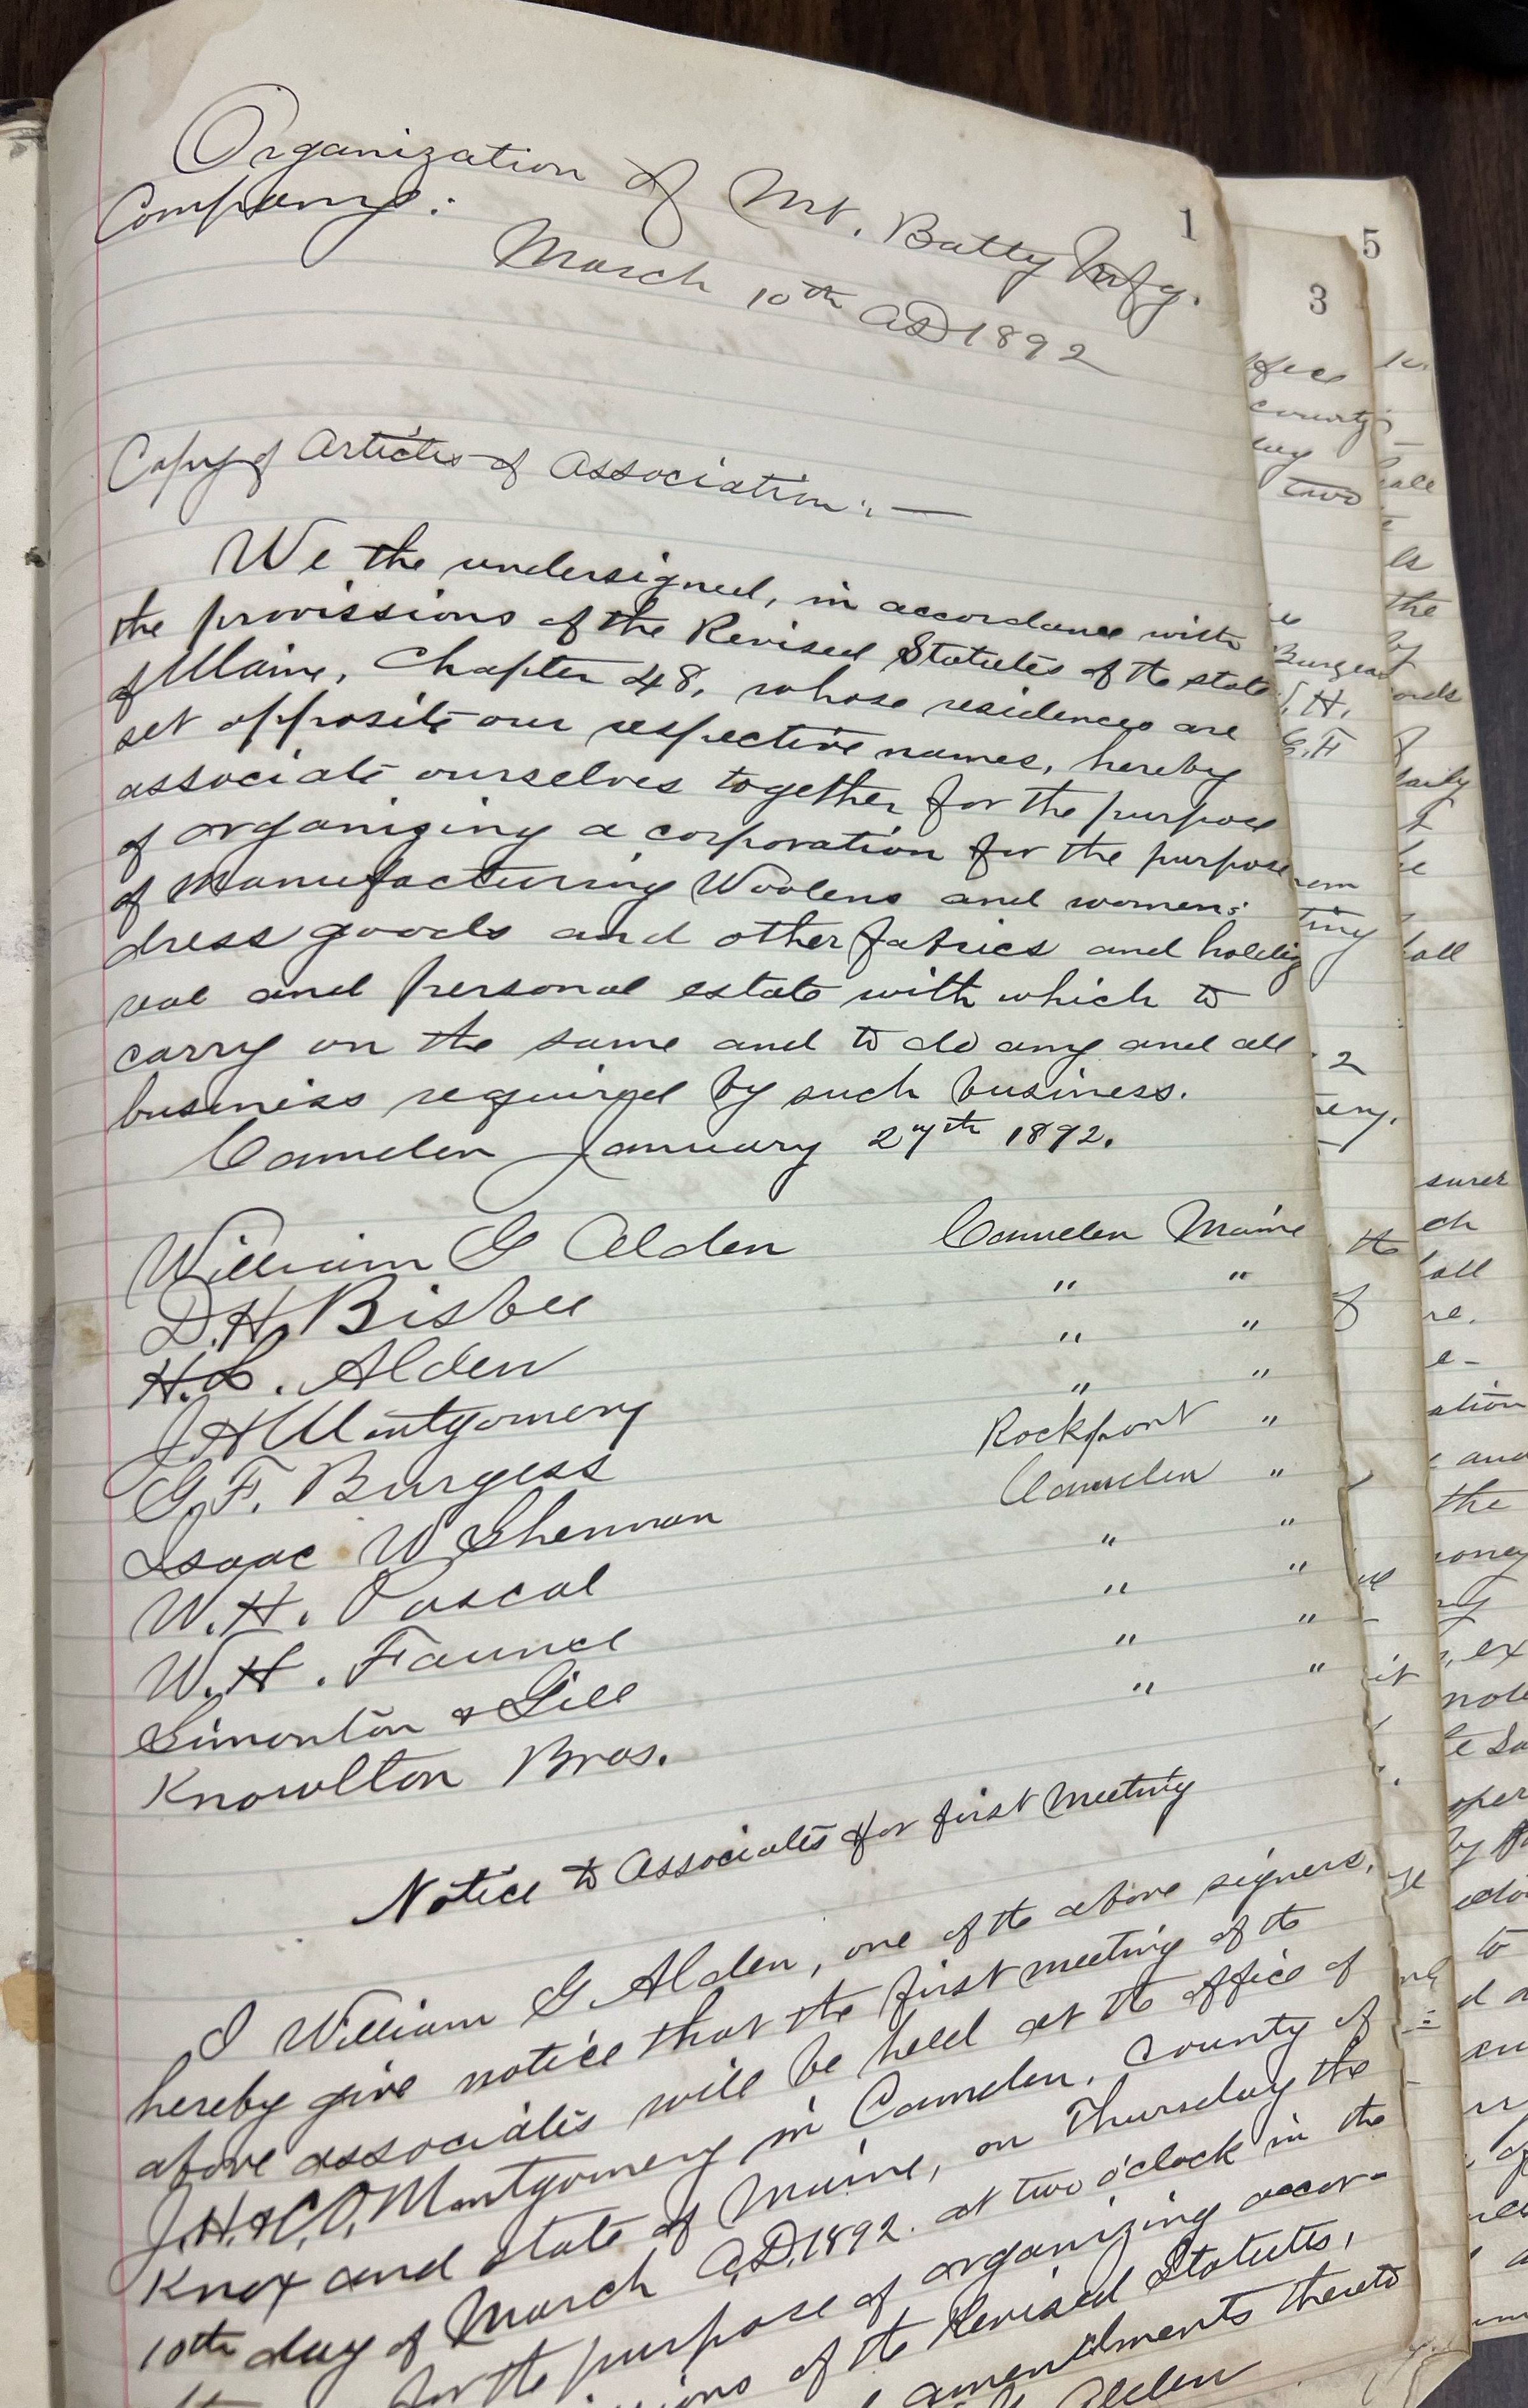 1
Organization of Mt. Batty Mfg.
Company:
March 10th AD 1892
Copy of Articles of Association:—
We the undersigned, in accordance with
the provissions of the Revised Statutes of the state
of Maine, Chapter 48, whose residences are
set opposite our respective names, hereby
associate ourselves together for the purpose
of organizing a corporation for the purpose
of manufacturing Woolens and womens
dress goods and other fabrics and holding
real and personal estate with which to
carry on the same and to do any and all
business required by such business.
Camden January 27th 1892.
William G Alden Camden Maine
D.H. Bisbee " "
H.L. Alden " "
J H Montgomery " "
G.F. Burgess Rockport "
Isaac W Sherman Camden "
W.H. Pascal " "
W.H. Faunce " "
Simonton & Gill " "
Knowlton Bros. " "
Notice to Associates for first meeting
I William G Alden, one of the above signers,
hereby give notice that the first meeting of the
above associates will be held at the office of
J.H. & C.O. Montgomery in Camden, County of
Knox and State of Maine, on Thursday the
10th day of March A.D. 1892. at two o'clock in the
for the purpose of organizing accor-
of the Revised Statutes,
amendments thereto
Alden
3
county
two
Burgess
H.
2
the
of
it
5
the
by
all
the
and
the
to